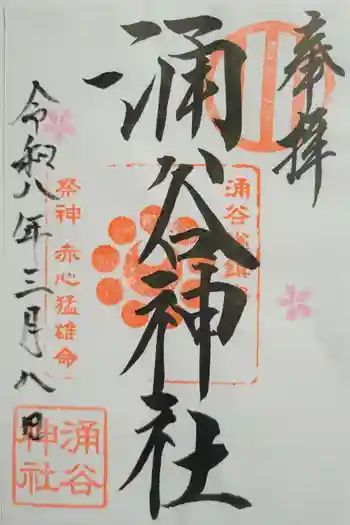 奉拝
涌谷神社
涌谷
祭神 赤心猛雄命
令和八年三月八日
涌谷
神社